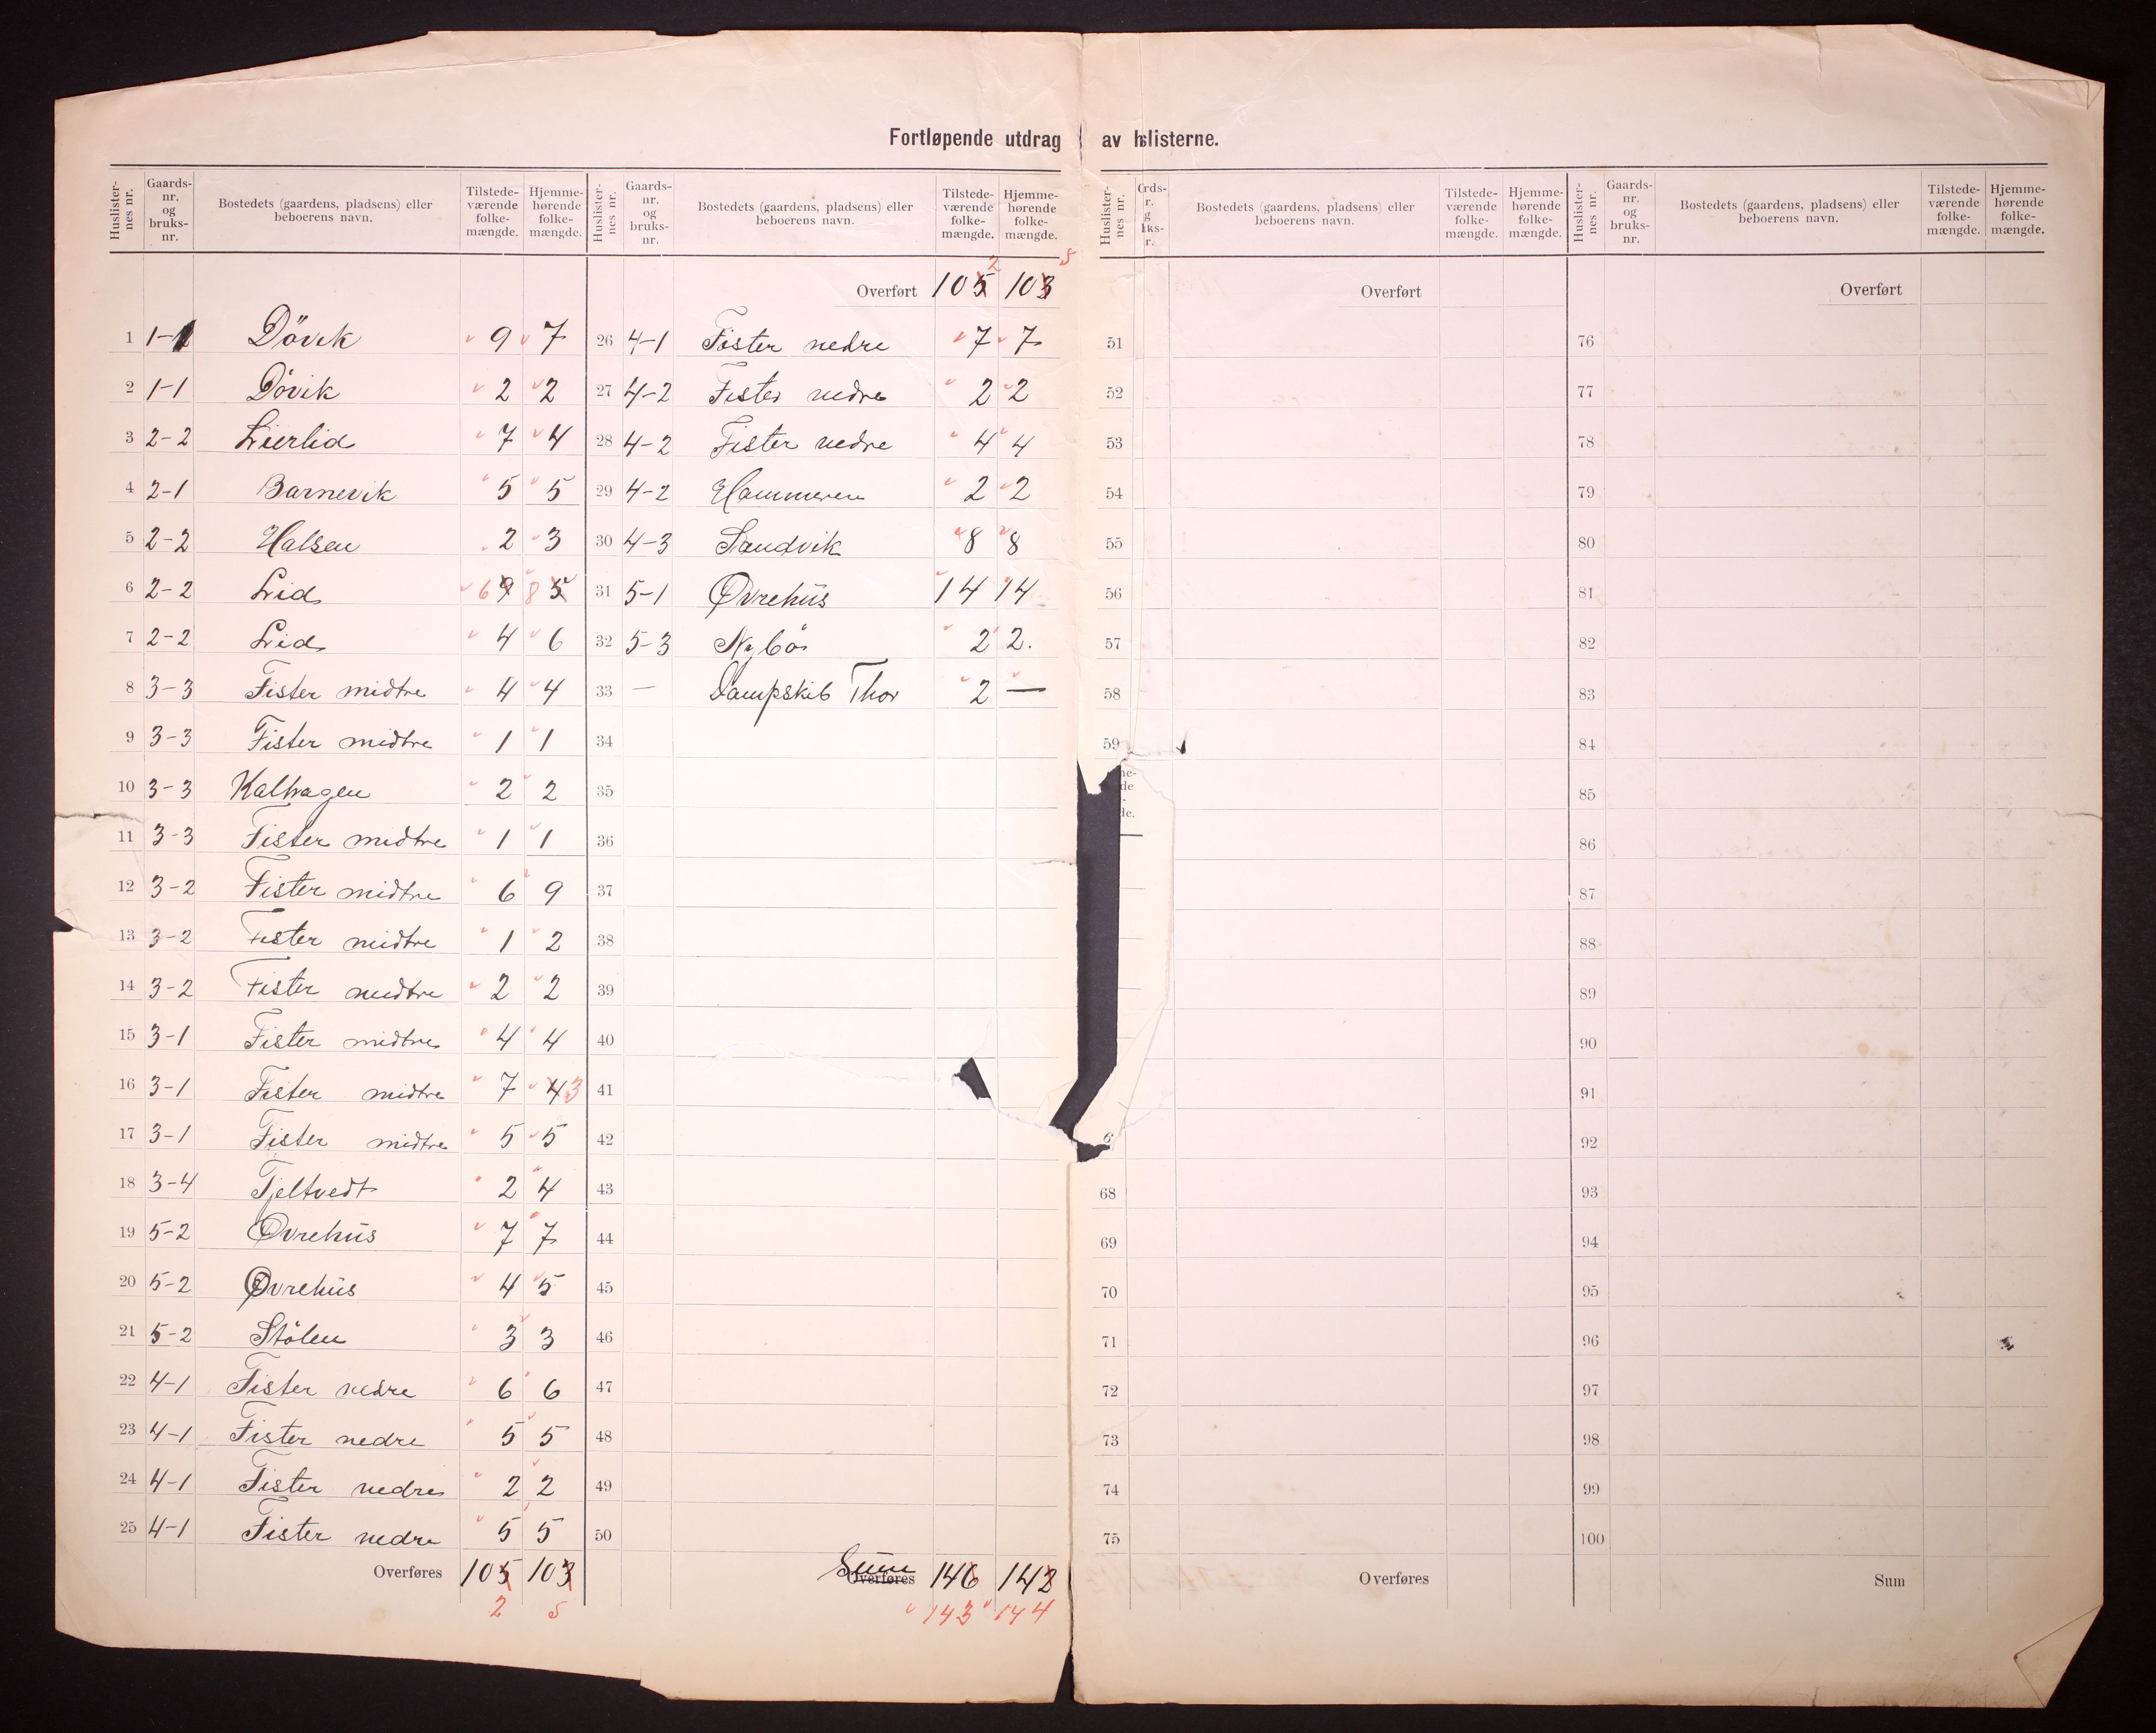 Fortløpende utdrag av h slisterne.
Huslister-nes nr. Gaards-nr. og bruks-nr. Bostedets (gaardens, pladsens) eller beboerens navn. Tilstede-værende folke-mængde. Hjemme-hørende folke-mængde.
1 1-1 Dövik 9 7
2 1-1 Dövik 2 2
3 2-2 Lierlid 7 4
4 2-1 Barnevik 5 5
5 2-2 Halsen 2 3
6 2-2 Lid 6 9 8 5
7 2-2 Lid 4 6
8 3-3 Fister midtre 4 4
9 3-3 Fister midtre 1 1
10 3-3 Kalhagen 2 2
11 3-3 Fister midtre 1 1
12 3-2 Fister midtre 6 9
13 3-2 Fister midtre 1 2
14 3-2 Fister midtre 2 2
15 3-1 Fister midtre 4 4
16 3-1 Fister midtre 7 4 3
17 3-1 Fister midtre 5 5
18 3-4 Tjeltvedt 2 4
19 5-2 Øvrehüs 7 7
20 5-2 Øvrehüs 4 5
21 5-2 Stölen 3 3
22 4-1 Fister nedre 6 6
23 4-1 Fister nedre 5 5
24 4-1 Fister nedre 2 2
25 4-1 Fister nedre 5 5
Overføres 105 103
2 5
Huslister-nes nr. Gaards-nr. og bruks-nr. Bostedets (gaardens, pladsens) eller beboerens navn. Tilstede-værende folke-mængde. Hjemme-hørende folke-mængde.
2 5
Overført 105 103
26 4-1 Fister nedre 7 7
27 4-2 Fister nedre 2 2
28 4-2 Fister nedre 4 4
29 4-2 Hammeren 2 2
30 4-3 Sandvik 8 8
31 5-1 Øvrehüs 14 14
32 5-3 Nybö 2 2.
33 — Dampskib Thor 2 —
34
35
36
37
38
39
40
41
42
43
44
45
46
47
48
49
50
Süm Overføres 146 142
143 144
Huslister-nes nr. rds- r. g ks- r. Bostedets (gaardens, pladsens) eller beboerens navn. Tilstede-værende folke-mængde. Hjemme-hørende folke-mængde.
Overført
51
52
53
54
55
56
57
58
59
ne-
de
-
de.
6
68
69
70
71
72
73
74
75
Overføres
Huslister-nes nr. Gaards-nr. og bruks-nr. Bostedets (gaardens, pladsens) eller beboerens navn. Tilstede-værende folke-mængde. Hjemme-hørende folke-mængde.
Overført
76
77
78
79
80
81
82
83
84
85
86
87
88
89
90
91
92
93
94
95
96
97
98
99
100
Sum